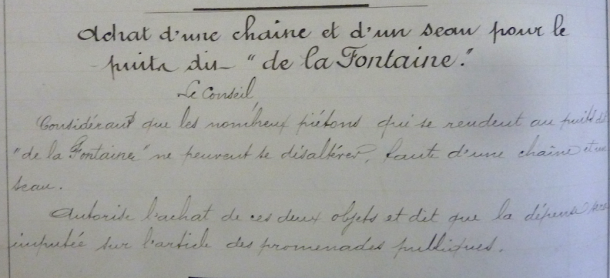 Achat d'une chaîne et d'un seau pour le
puits dit "de la Fontaine".
Le Conseil,
Considérant que les nombreux piétons qui se rendent au puits dit
"de la Fontaine" ne peuvent se désaltérer, faute d'une chaîne et un
seau.
Autorise l'achat de ces deux objets et dit que la dépense sera
imputée sur l'article des promenades publiques.